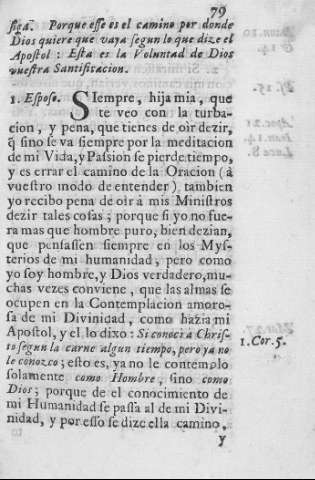 79
siga. Porque esse es el camino por donde
Dios quiere que vaya segun lo que dize el
Apostol: Esta es la Voluntad de Dios
vuestra Santificacion.
1. Esposo. SIempre, hija mia, que
te veo con la turba-
cion, y pena, que tienes de oir dezir,
q̃ sino se va siempre por la meditacion
de mi Vida, y Passion se pierde tiempo,
y es errar el camino de la Oracion (à
vuestro modo de entender) tambien
yo recibo pena de oir à mis Ministros
dezir tales cosas; porque si yo no fue-
ra mas que hombre puro, bien dezian,
que pensassen siempre en los Mys-
terios de mi humanidad, pero como
yo soy hombre, y Dios verdadero, mu-
chas vezes conviene, que las almas se
ocupen en la Contemplacion amoro-
sa de mi Divinidad, como hazia mi
Apostol, y el lo dixo: Si conoci a Chris-
to segun la carne algun tiempo, pero ya no
le conozco; esto es, ya no le contemplo
solamente como Hombre, sino como
Dios; porque de el conocimiento de
mi Humanidad se passa al de mi Divi-
nidad, y por esso se dize ella camino,
y
1. Cor. 5.